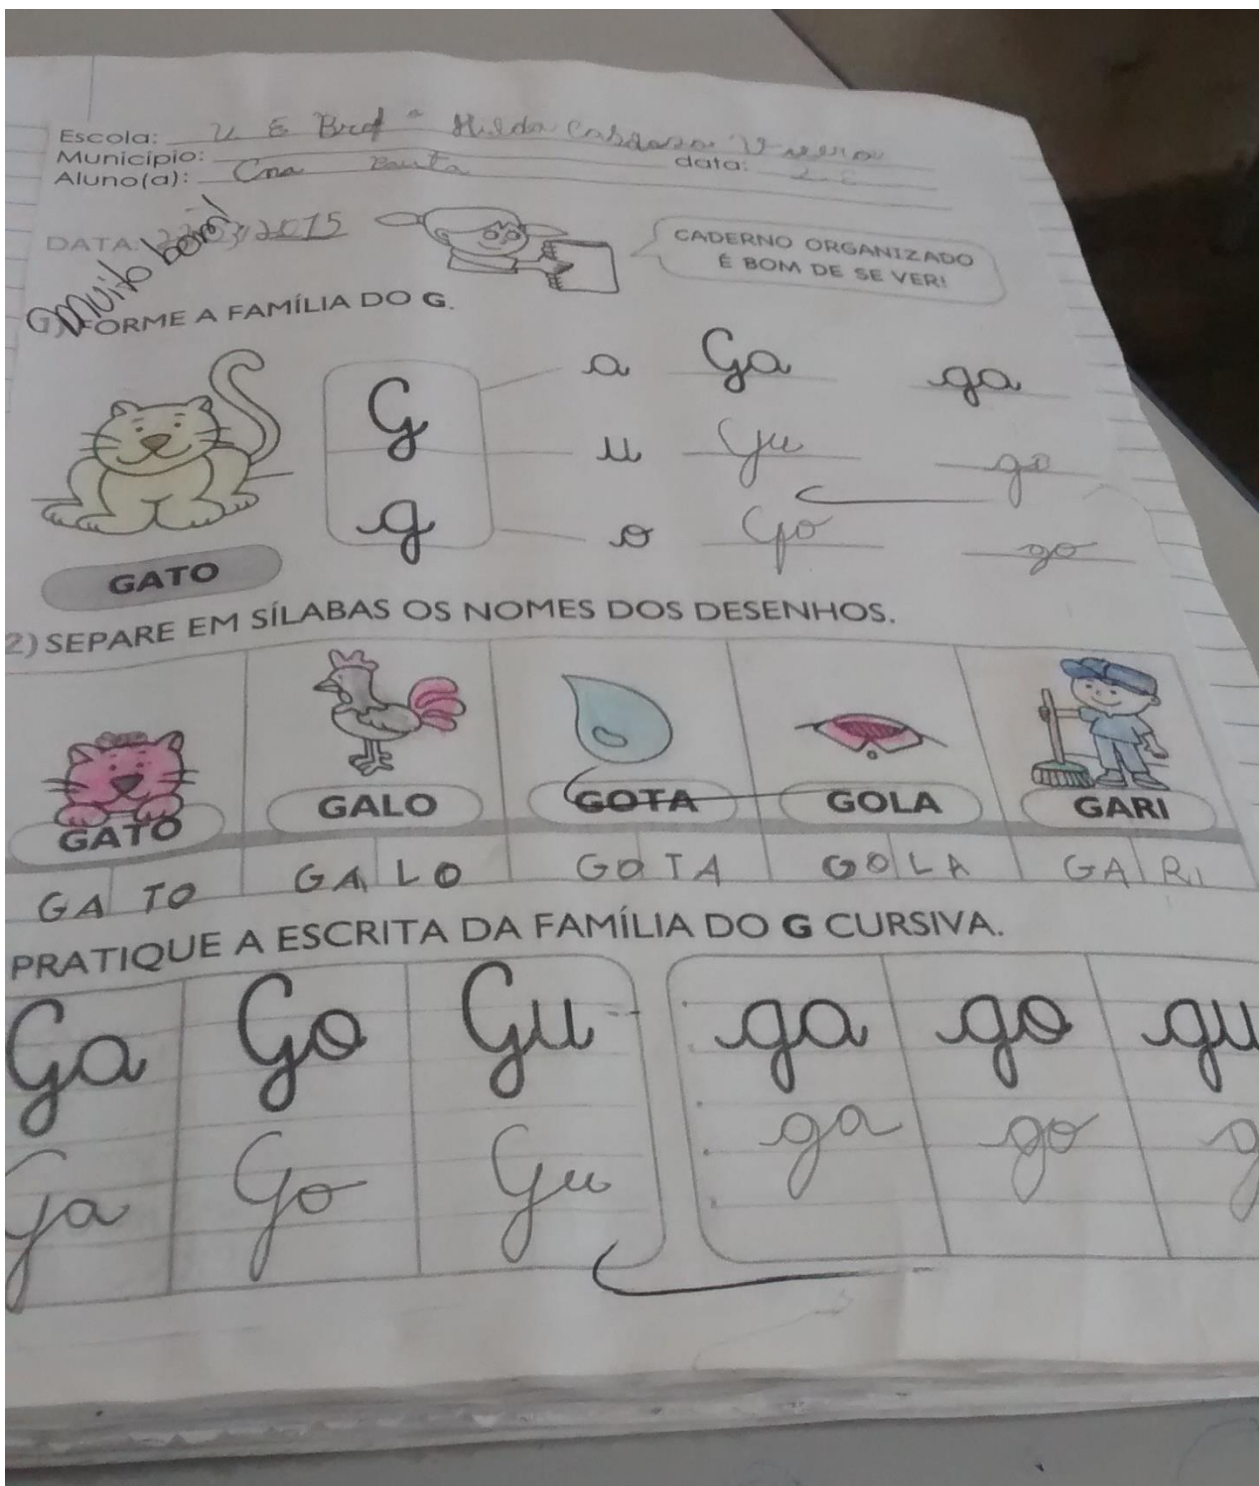 Escola: U E Prof ª Hilda
Município:
data:
Aluno(a):
DATA: 2015
Muito bem!
CADERNO ORGANIZADO
É BOM DE SE VER!
1) FORME A FAMÍLIA DO G.
G a Ga ga
u Gu go
g o Go go
GATO
2) SEPARE EM SÍLABAS OS NOMES DOS DESENHOS.
GATO GALO GOTA GOLA GARI
GA TO GA LO GO TA GO LA GA RI
PRATIQUE A ESCRITA DA FAMÍLIA DO G CURSIVA.
Ga Go Gu ga go gu
Ga Go Gu ga go g